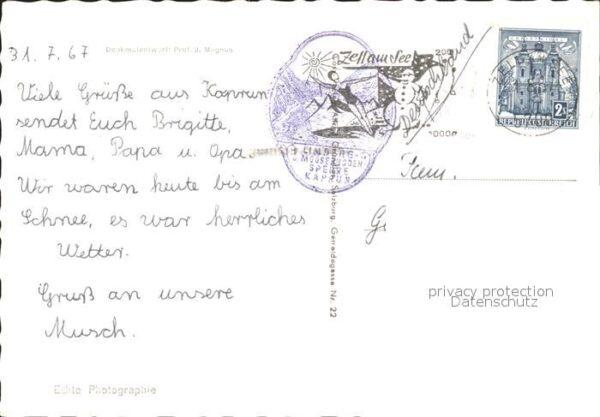 31.7.67
Denkmalentwurf: Prof. J. Magnus
Viele Grüße aus Kaprun
sendet Euch Brigitte,
Mama, Papa u. Opa
Wir waren heute bis am
Schnee, es war herrliches
Wetter.
Gruß an unsere
Musch.
Echte Photographie
Salzburg, Gemeidegasse Nr. 22
Zell am See
LIMBERG-
MOOSERBODEN
SPERRE
KAPRUN
Deutschland
2S
REPUBLIK ÖSTERREICH
Fam.
G
privacy protection
Datenschutz